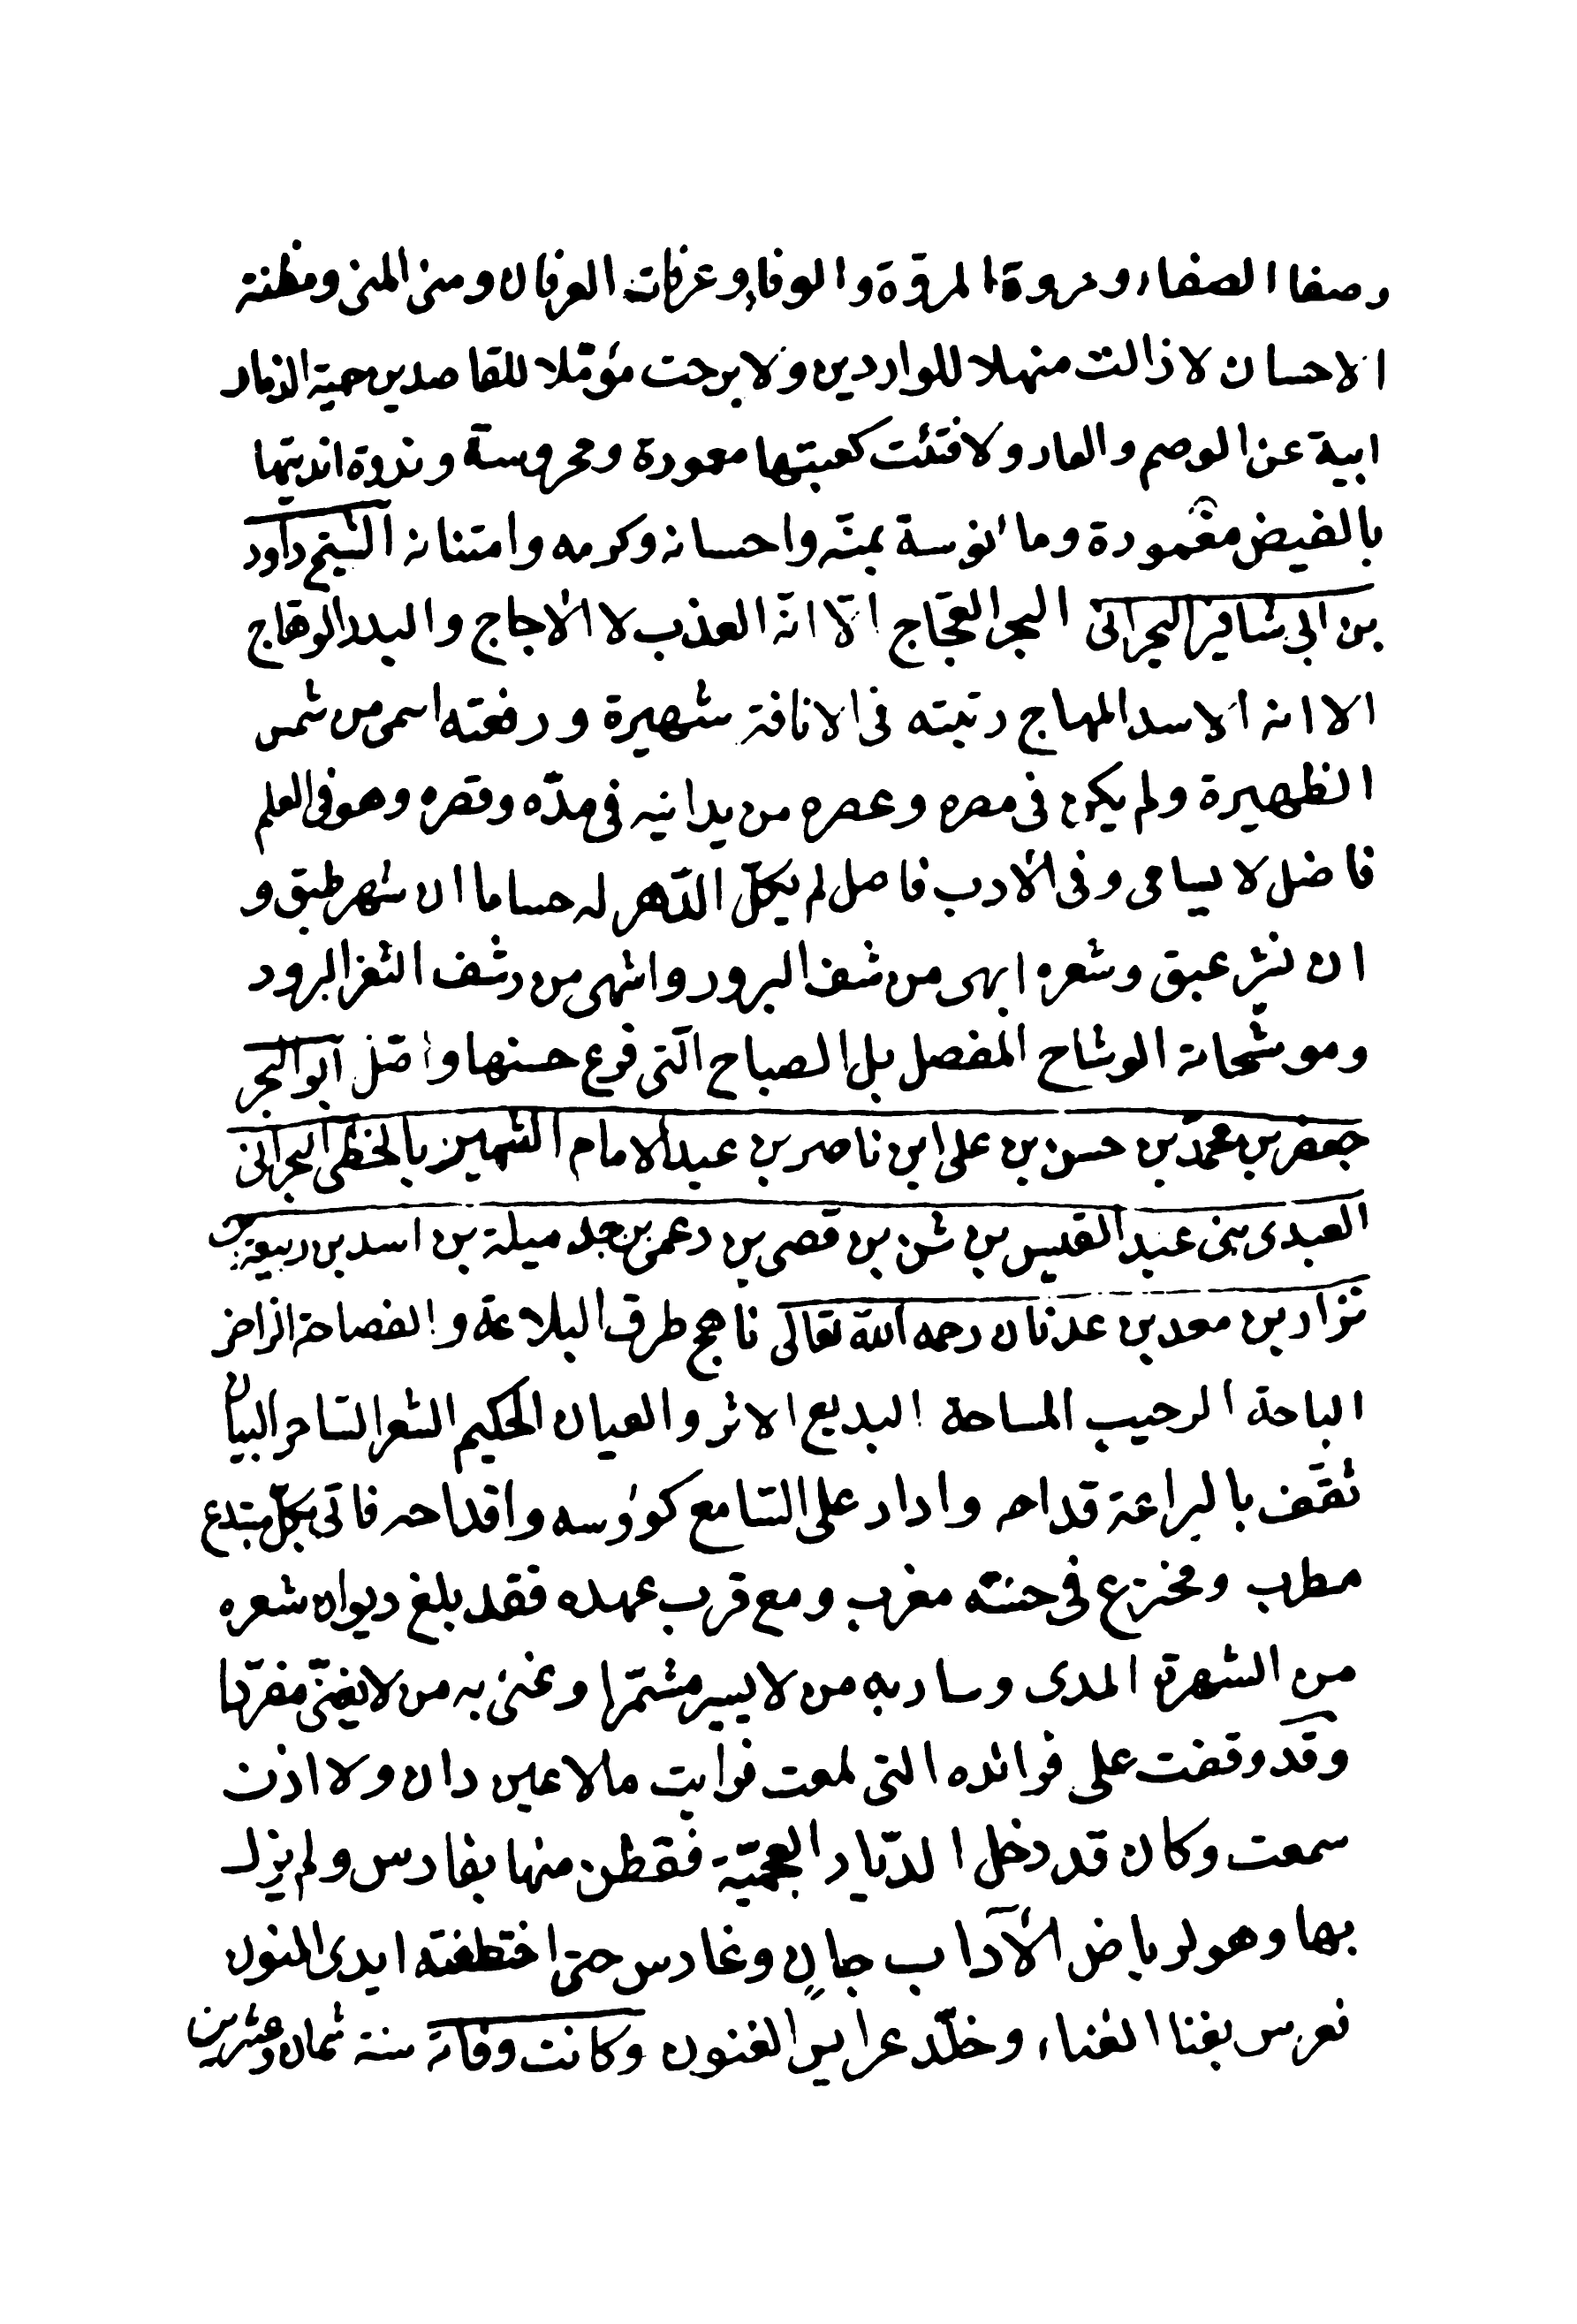 وصفا الصفاء ومروة المروّة والوفاء وعرفات العرفان ومنى المنى ومظنة
الاحسان لا زالت منهلا للواردين ولا برحت مؤمّلا للقاصدين حمية الذمار
ابية عن الوصم والعار ولا فتئت كعبتها معمورة ومحروسة وندوة انديتها
بالفيض مغمورة ومانوسة بمنّه واحسانه وكرمه وامتنانه الشيخ داود
بن ابى شافيز البحرانى البحر العجّاج الّا انّه العذب لا الاجاج والبدر الوهّاج
الا انه الاسد المهاج رتبته فى الانافة شهيرة ورفعته اسمى من شمس
الظهيرة ولم يكن فى مصره وعصره من يدانيه فى مدّه وقصره وهو فى العلم
فاضل لا يسامى وفى الادب فاصل لم يكلّ الدّهر له حساما ان شهر طبق و
ان نشر عبق وشعره ابهى من شف البرود واشهى من رشف الثغر البرود
وموشحاته الوشاح المفصل بل الصباح الّتى فرع حسنها واصّل ابو البحر
جعفر بن محمّد بن حسن بن على ابن ناصر بن عبد الامام الشهير بالخطى البحرانى
العبدى بنى عبد القيس بن شن بن قصى بن دعمى بن جد ميلة بن اسد بن ربيعة بن
نزار بن معد بن عدنان رحمه الله تعالى ناهج طرق البلاغة والفصاحة الزاخر
الباحة الرحيب المساحة البديع الاثر والعيان الحكيم الشعر السّاحر البيان
ثقّف بالبراعة قداحه وادار على السّامع كوؤسه واقداحه فاتى بكلّ مبتدع
مطرب ومخترع فى حسنه مغرب ومع قرب عهده فقد بلغ ديوان شعره
من الشهرة المدى وسار به من لا يسير مشمّرا وغنى به من لا يغنّى مغرّدا
وقد وقفت على فرائده التى لمعت فرايت ما لا عين رات ولا اذن
سمعت وكان قد دخل الدّيار العجميّة فقطن منها بفارس ولم يزل
بها وهو لرياض الآداب جانٍ وغارس حتى اختطفته ايدى المنون
فعرس بفنا الفناء وخلّد عرايس الفنون وكانت وفاته سنة ثمان وعشرين